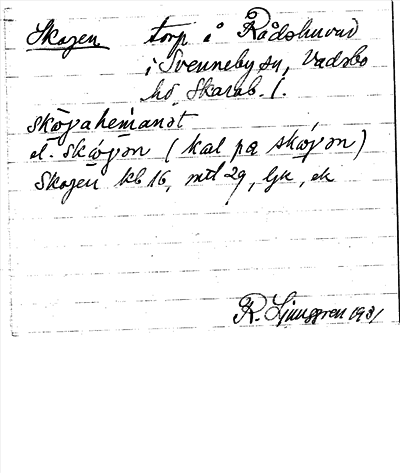 Skogen torp i Rådshuvud
i Svenneby sn, Vadsbo
hd, Skarab. l.
skōγahemanət
el. skōγən (kal pa skōγən)
Skogen kb 16, mtl 29, ljk, ek
R. Ljunggren 1931